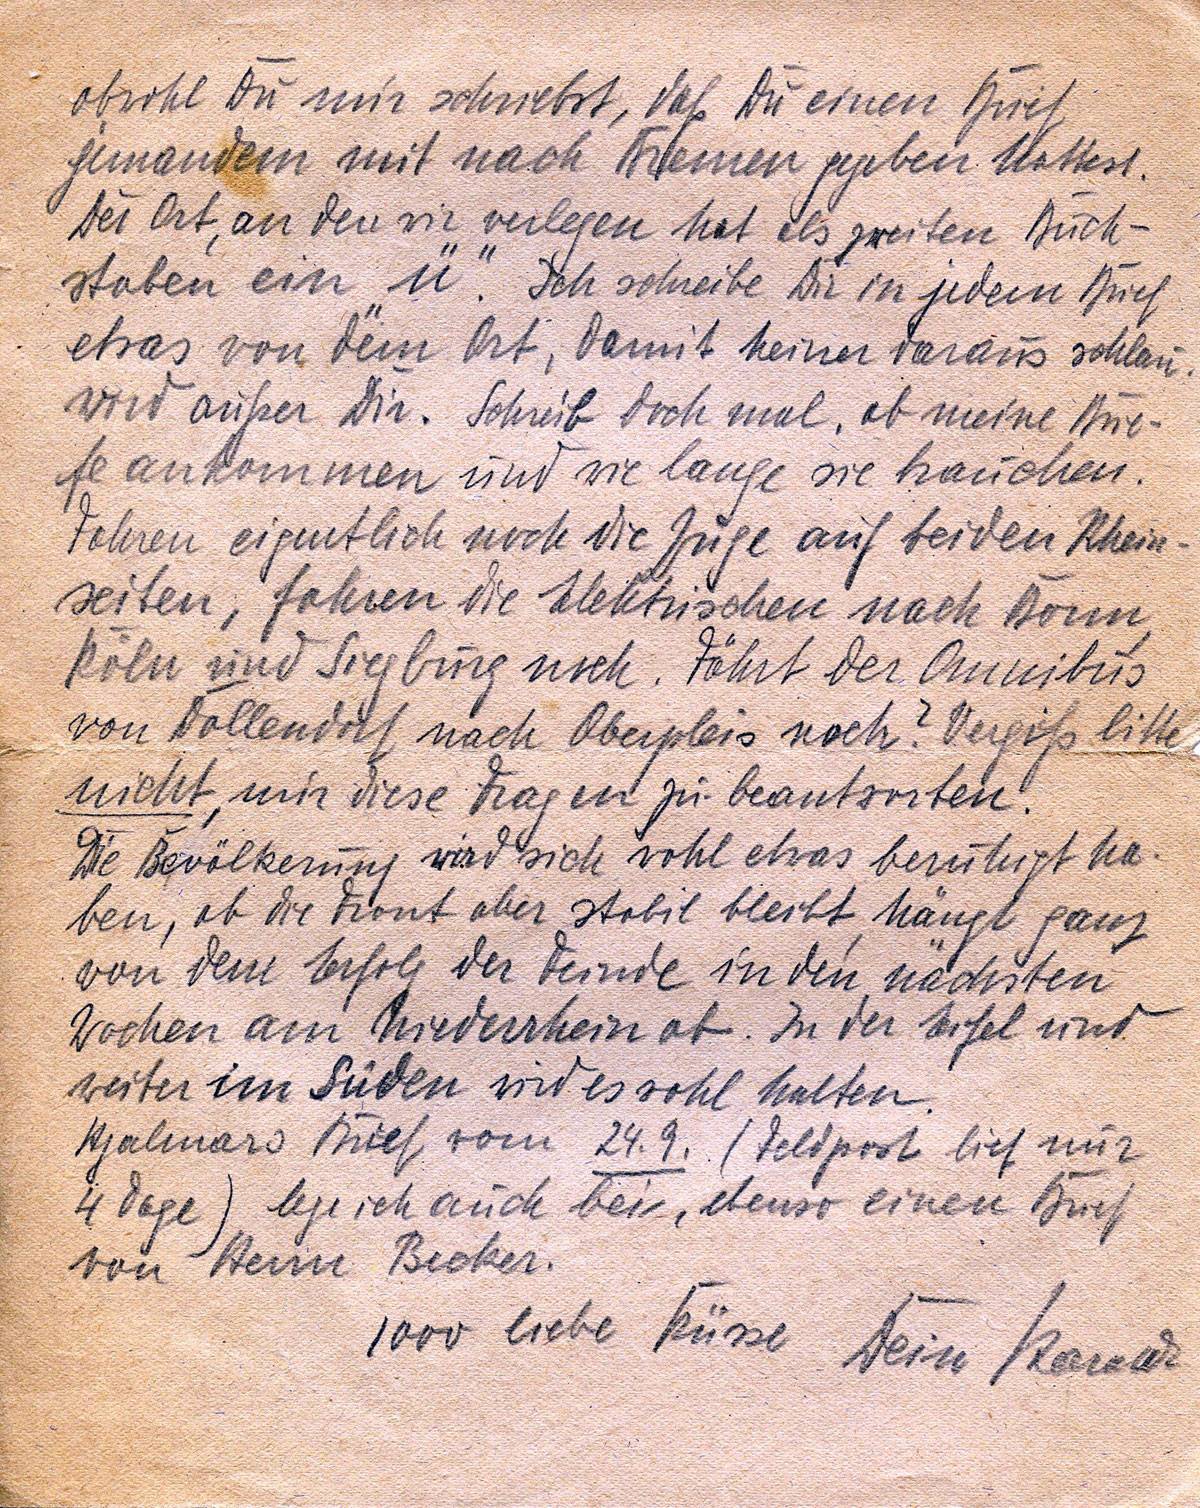 obwohl Du mir schriebst, daß Du einen Brief
jemandem mit nach Bremen gegeben hattest.
Der Ort, an den wir verlegen hat als zweiten Buch-
staben ein "ü". Ich schreibe Dir in jedem Brief
etwas von dem Ort, damit keiner daraus schlau
wird außer Dir. Schreib doch mal, ob meine Brie-
fe ankommen und wie lange sie brauchen.
Fahren eigentlich noch die Züge auf beiden Rhein-
seiten, fahren die Elektrischen nach Bonn,
Köln und Siegburg noch. Fährt der Omnibus
von Dollendorf nach Oberpleis noch? Vergiß bitte
nicht, mir diese Fragen zu beantworten.
Die Bevölkerung wird sich wohl etwas beruhigt ha-
ben, ob die Front aber stabil bleibt, hängt ganz
von dem Erfolg der Feinde in den nächsten
Wochen am Niederrhein ab. In der Eifel und
weiter im Süden wird es wohl halten.
Hjalmars Brief vom 24.9. (Feldpost lief nur
4 Tage) lege ich auch bei, ebenso einen Brief
von Herrn Becker.
1000 liebe Küsse Dein